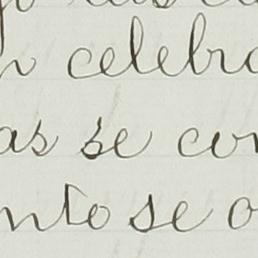 celebra
as se con
nto se o